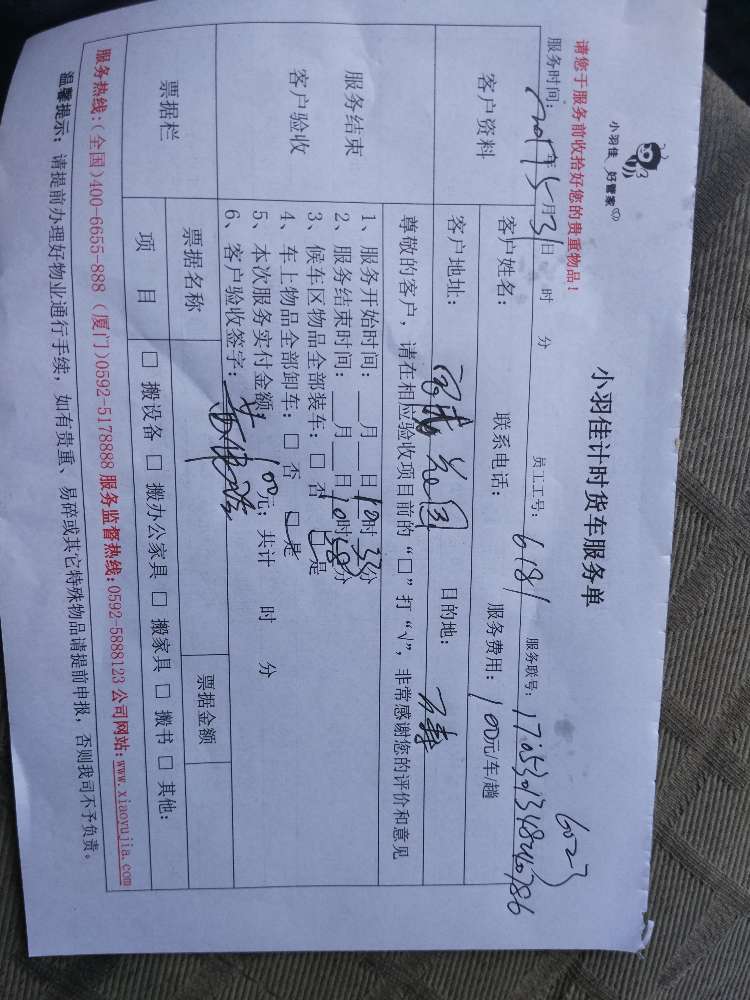 小羽佳 好管家
小羽佳计时货车服务单
6023
请您于服务前收拾好您的贵重物品!
服务时间: 2017年5月31日 时 分 员工工号: 6181 服务联号:
客户资料
客户姓名: 联系电话: 服务费用: 100元/车/趟
客户地址: 花园 目的地: 万寿
服务结束
客户验收
尊敬的客户,请在相应验收项目前的“□”打“√”,非常感谢您的评价和意见
1、服务开始时间:__月__日10时33分
2、服务结束时间:__月__日10时58分
3、候车区物品全部装车:□ 否 □是
4、车上物品全部卸车:□ 否 □是
5、本次服务实付金额: 100元;共计 时 分
6、客户验收签字:
票据栏
票据名称 票据金额
项 目 □ 搬设备 □ 搬办公家具 □ 搬家具 □ 搬书 □ 其他:
服务热线:(全国)400-6655-888 (厦门)0592-5178888 服务监督热线:0592-5888123 公司网站:www.xiaoyujia.com
温馨提示: 请提前办理好物业通行手续,如有贵重、易碎或其它特殊物品请提前申报,否则我司不予负责。